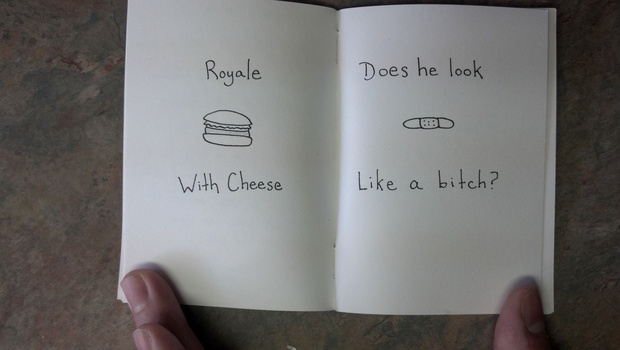 Royale
With Cheese
Does he look
Like a bitch?